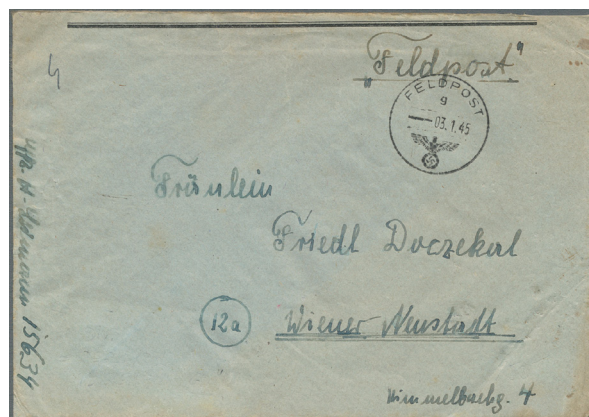 4
„Feldpost"
FELDPOST
g
03.1.45
Fräulein
Friedl Doczekal
12a Wiener Neustadt
4
15634